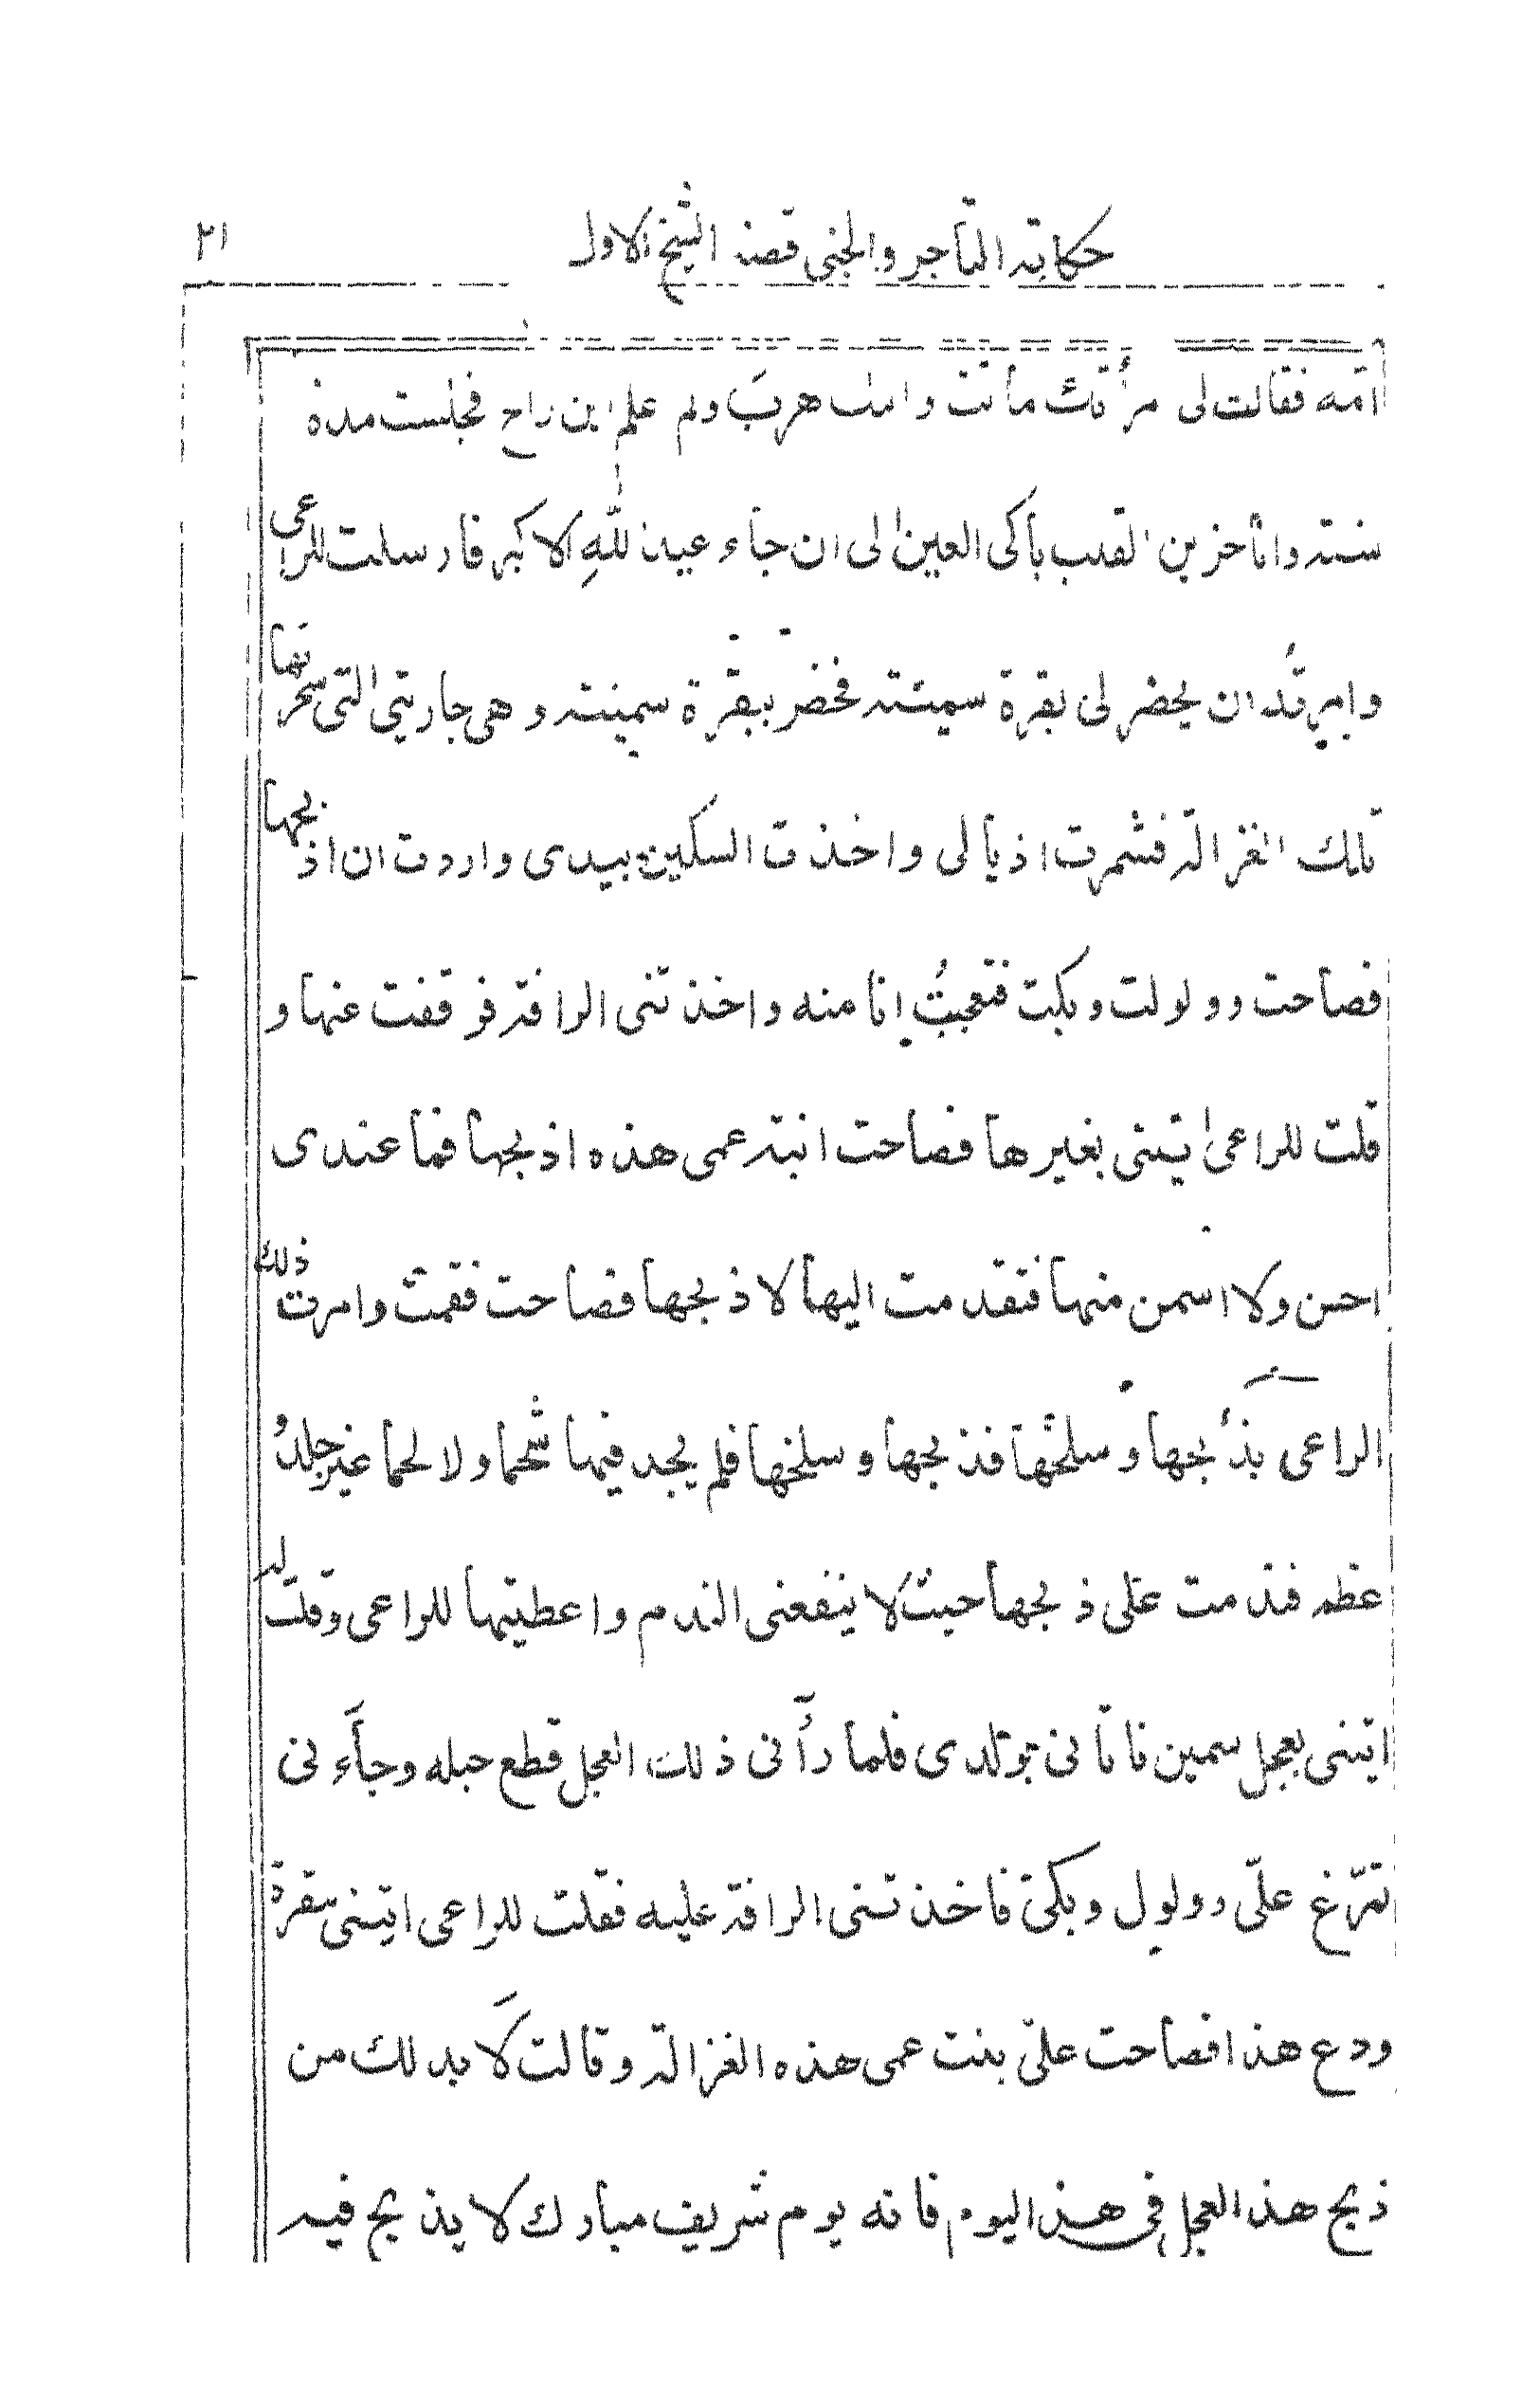 حكاية التاجر والجني قصة الشيخ الاول ٢١
امه فقالت لي مرأتك ماتت وابنك هرب ولم علم اين راح فجلست مدة
سنة وانا حزين القلب باكي العين الى ان جاء عيد الله الاكبر فارسلت للراعي
وامرته ان يحضر لي بقرة سمينة فحضر ببقرة سمينة وهي جاريتي التي سحرتها
تلك الغزالة فشمرت اذيالي واخذت السكين بيدي واردت ان اذبحها
فصاحت وولولت وبكت فتعجبت انا منه واخذتني الرافة فوقفت عنها و
قلت للراعي ايتيني بغيرها فصاحت ابنة عمي هذه اذبحها فما عندي
احسن ولا اسمن منها فتقدمت اليها لاذبحها فصاحت فقمت وامرت ذلك
الراعي بذبحها وسلخها فذبحها وسلخها فلم يجد فيها شحما ولا لحما غير جلد و
عظم فندمت على ذبحها حيث لا ينفعني الندم واعطيتها للراعي وقلت له
ايتني بعجل سمين فاتاني بولدي فلما رأني ذلك العجل قطع حبله وجاءني
تمرّغ علىّ وولول وبكى فاخذتني الرافة عليه فقلت للراعي ايتيني ببقرة
ودع هذا فصاحت علىّ بنت عمي هذه الغزالة وقالت لا بد لك من
ذبح هذا العجل في هذا اليوم فانه يوم شريف مبارك لا يذبح فيه